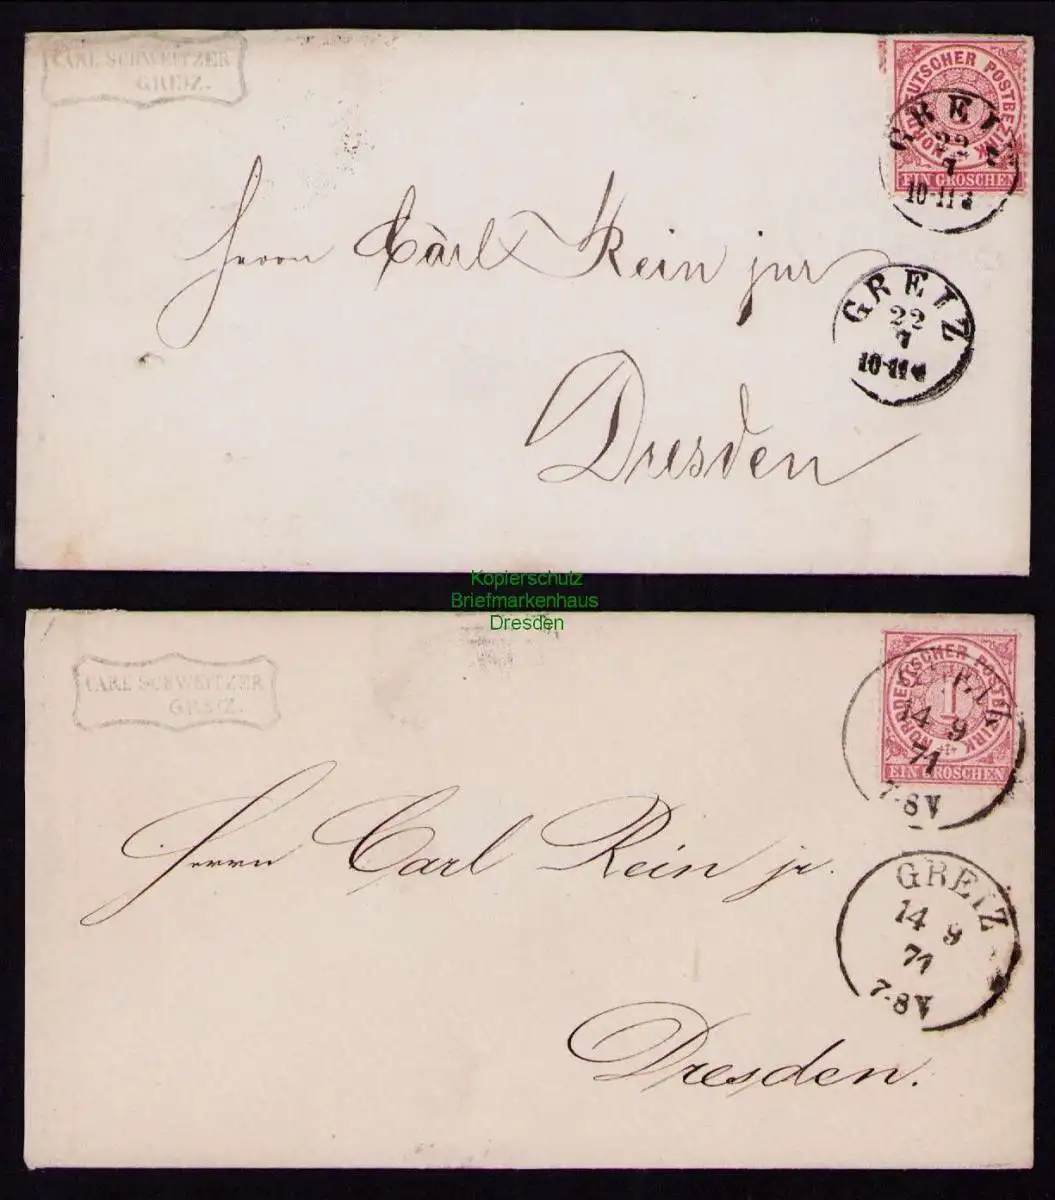 CARL SCHWEITZER
GREIZ.
NORDDEUTSCHER POSTBEZIRK
EIN GROSCHEN
GREIZ
22
7
10-11
Herrn Carl Rein jur
GREIZ
22
7
10-11
Dresden
Kopierschutz
Briefmarkenhaus
Dresden
CARL SCHWEITZER
GREIZ.
NORDDEUTSCHER POSTBEZIRK
1
EIN GROSCHEN
14 9
71
7-8 V
Herrn Carl Rein jr.
GREIZ
14 9
71
7-8 V
Dresden.